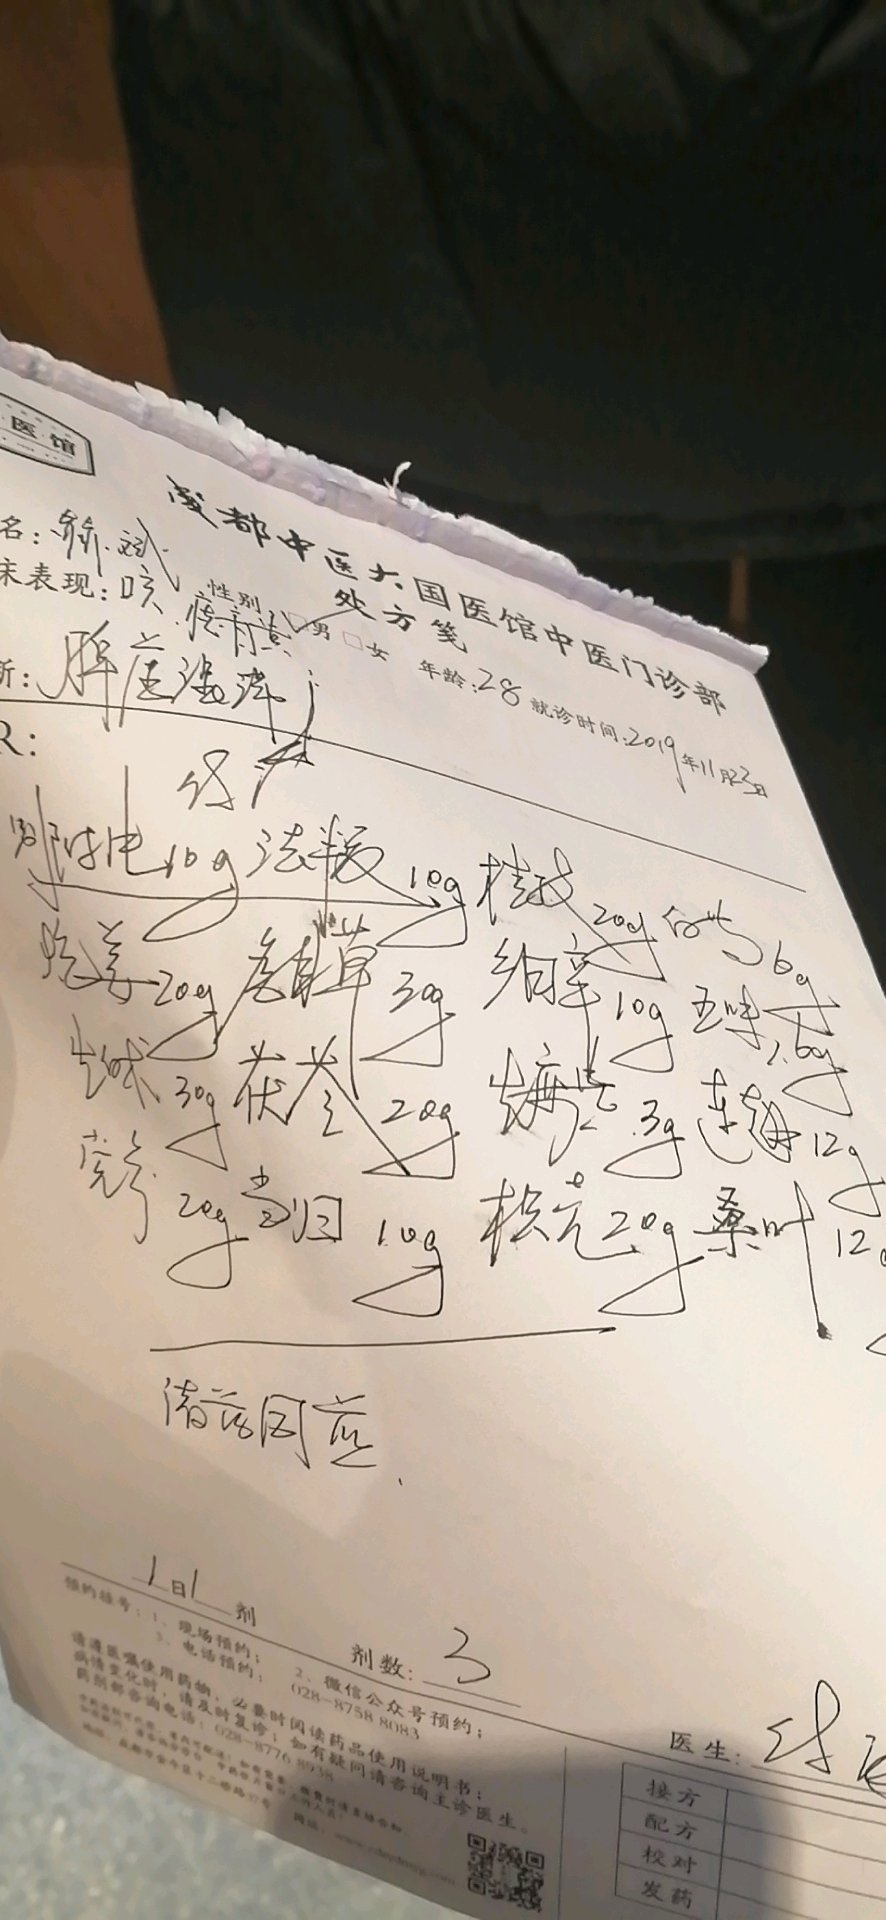 医馆
成都中医大国医馆中医门诊部
处方笺
名: 斌
性别: 男 女 年龄: 28 就诊时间: 2019年11月23日
床表现: 咳 痰青黄
断:
R:
附片 10g 法半夏 10g 桂枝 20g 白芍 6g
炮姜 20g 鱼腥草 30g 细辛 10g 五味 6g
30g 茯苓 20g 生麻黄 3g 连翘 12g
党参 20g 当归 10g 枳壳 20g 桑叶 12g
诸药同煎
1日1剂
剂数: 3
预约挂号: 1、现场预约; 2、微信公众号预约;
3、电话预约: 028-8758 8083
请遵医嘱使用药物, 必要时阅读药品使用说明书;
病情变化时, 请及时复诊; 如有疑问请咨询主诊医生。
药剂部咨询电话: 028-8776 8938
医生:
接方
配方
校对
发药